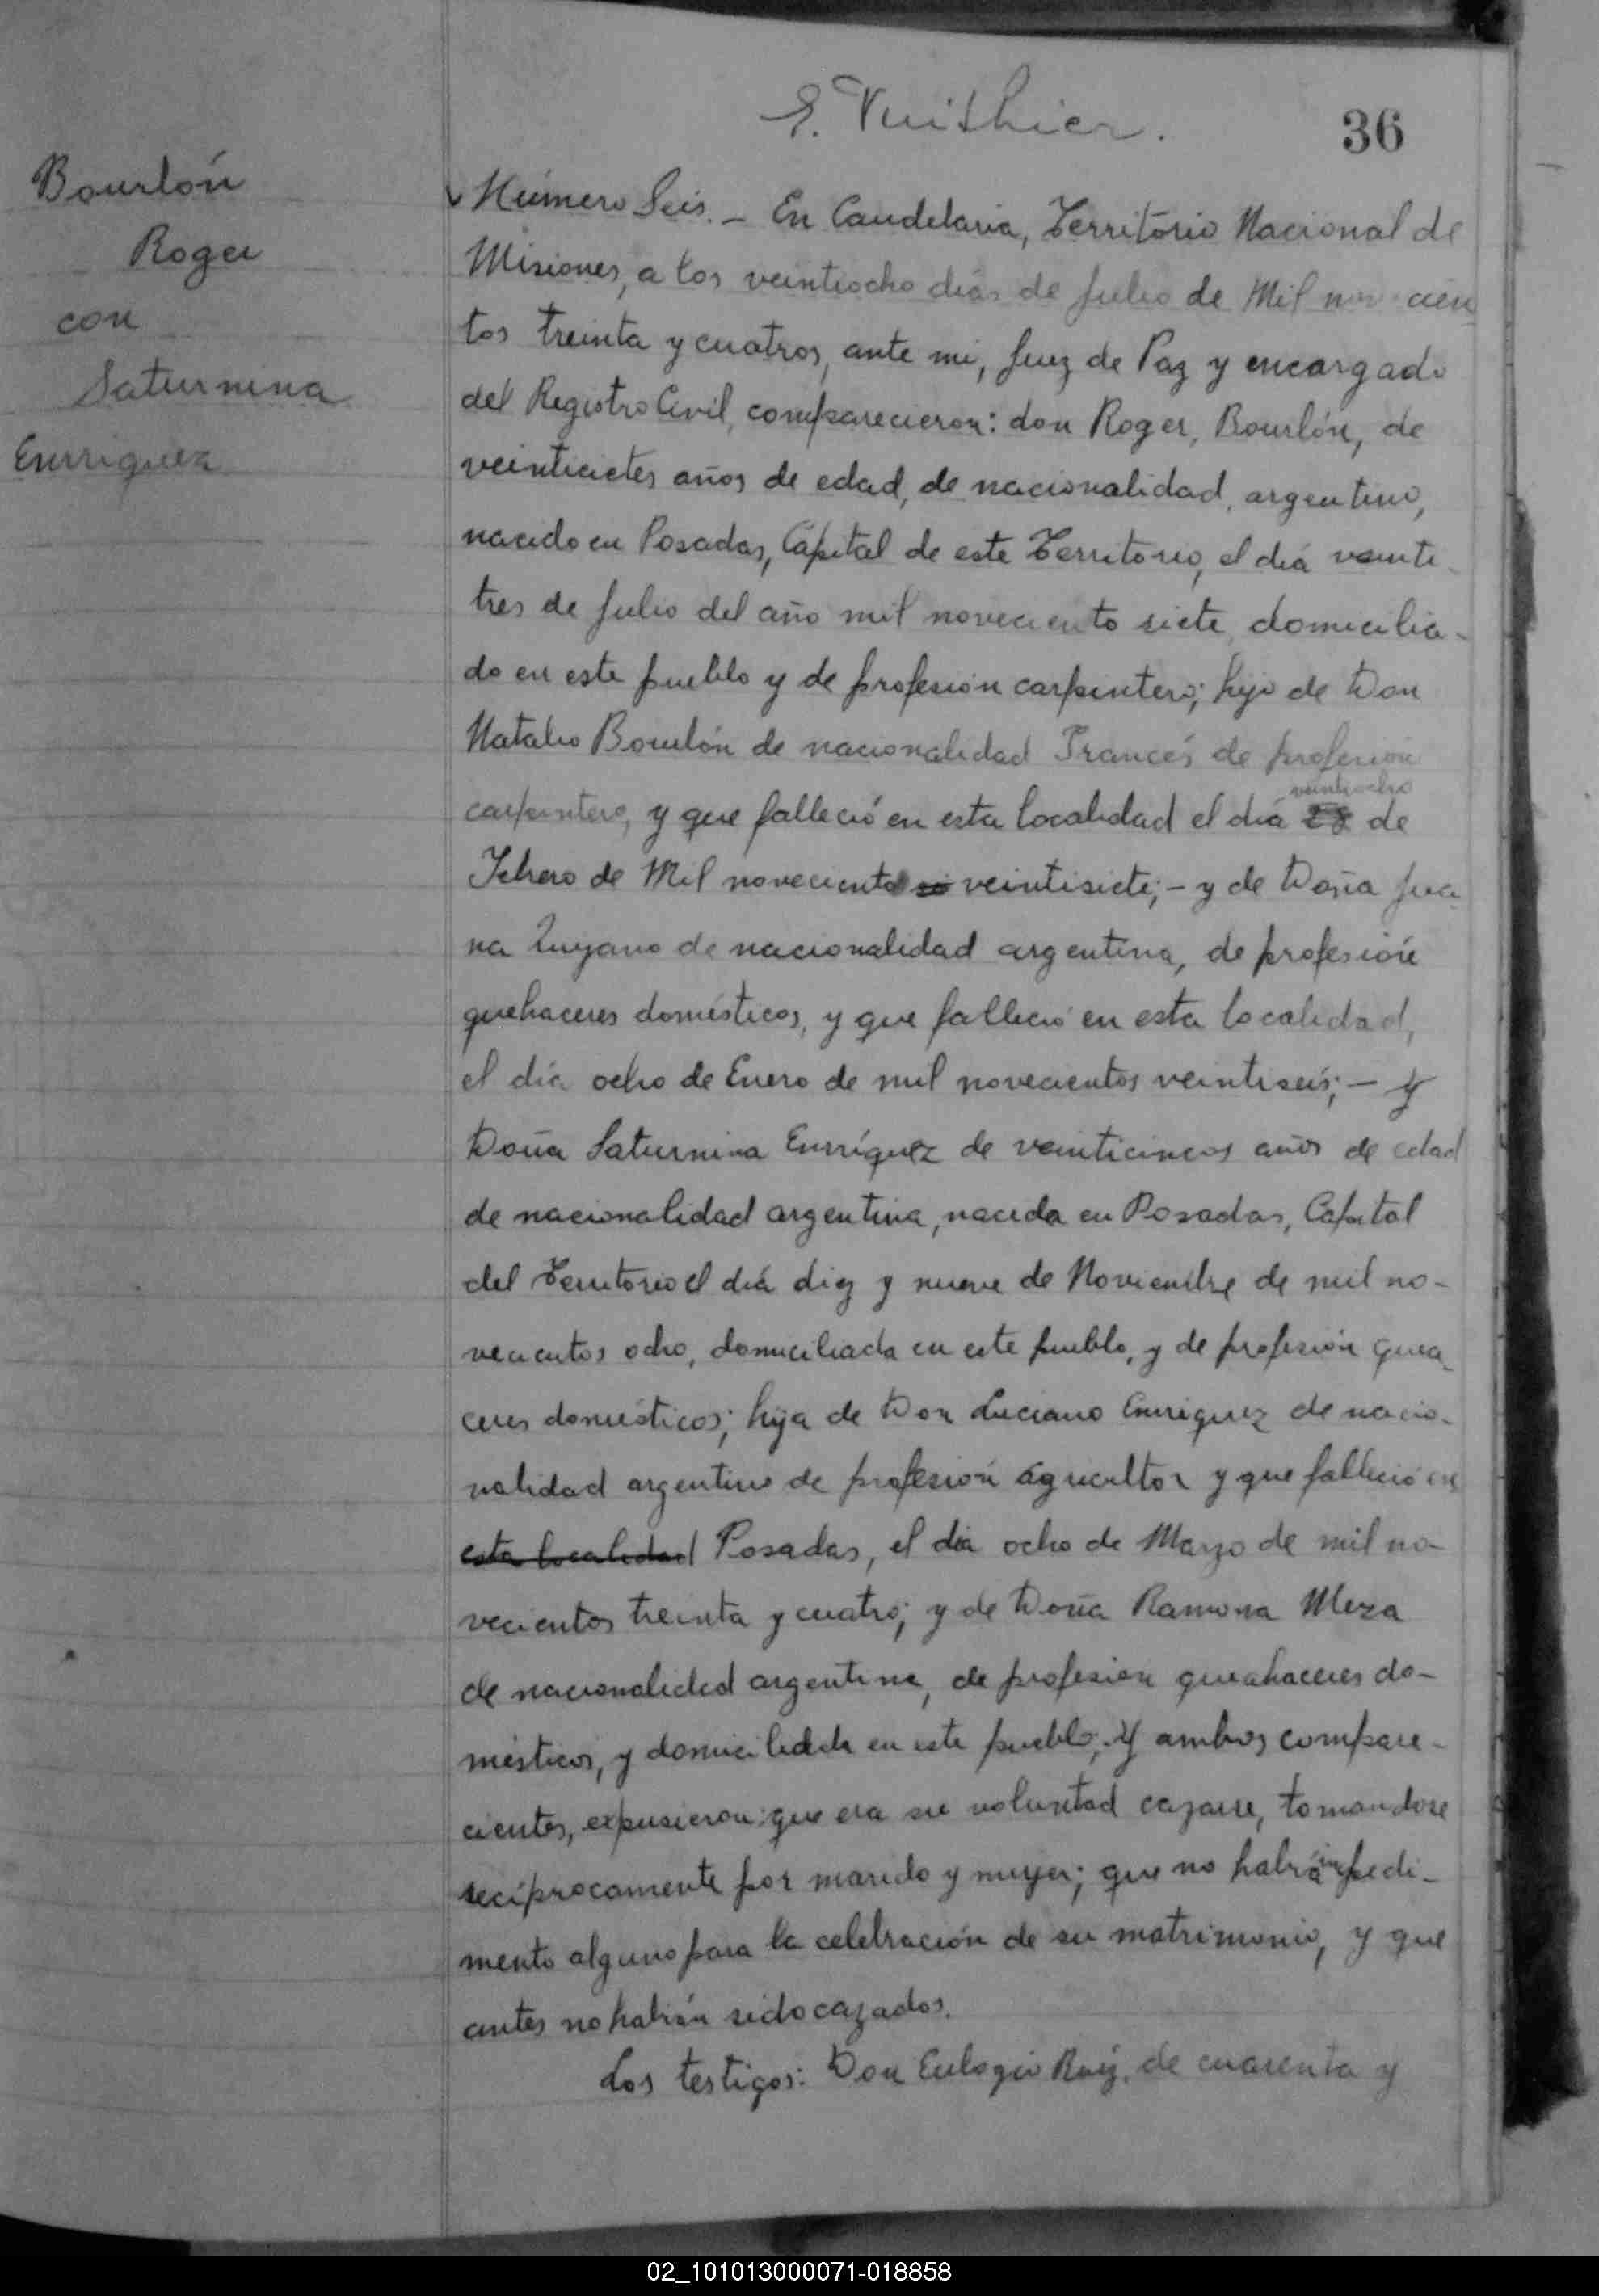 E. Vuithier.
36
Bourlón
Roger
con
Saturnina
Enrriquez
Número Seis. - En Candelaria, Territorio Nacional de
Misiones, a los veintiocho dias de Julio de Mil novecien
tos treinta y cuatros, ante mi, Juez de Paz y encargado
del Registro Civil, comparecieron: don Roger, Bourlón, de
veinticietes años de edad, de nacionalidad, argentino,
nacido en Posadas, Capital de este Territorio, el día veinti-
tres de Julio del año mil noveciento siete, domicilia-
do en este pueblo y de profesión carpintero; hijo de Don
Natalio Bourlón de nacionalidad Francés de profesión
veintiocho
carpintero, y que falleció en esta localidad el día 28 de
Febrero de Mil noveciento veintisiete; - y de Doña Jua
na de nacionalidad argentina, de profesión
quehaceres domésticos, y que falleció en esta localidad,
el día ocho de Enero de mil novecientos veintiseis; - y
Doña Saturnina Enrríquez de veinticincos años de edad
de nacionalidad argentina, nacida en Posadas, Capital
del Territorio el día diez y nueve de Noviembre de mil no-
vecientos ocho, domiciliada en este pueblo, y de profesión quea
ceres domésticos; hija de Don Luciano Enrriquez de nacio-
nalidad argentino de profesión agricultor y que falleció en
esta localidad Posadas, el dia ocho de Marzo de mil no-
vecientos treinta y cuatro; y de Doña Ramona Meza
de nacionalidad argentina, de profesion queahaceres do-
mésticos, y domiciliada en este pueblo; Y ambos compare-
cientes, expusieron: que era su voluntad cazarse, tomandose
recíprocamente por marido y mujer; que no habría impedi-
mento alguno para la celebración de su matrimonio, y que
antes no habían sido cazados.
Los testigos: Don Eulogio Ruiz, de cuarenta y
02_101013000071-018858